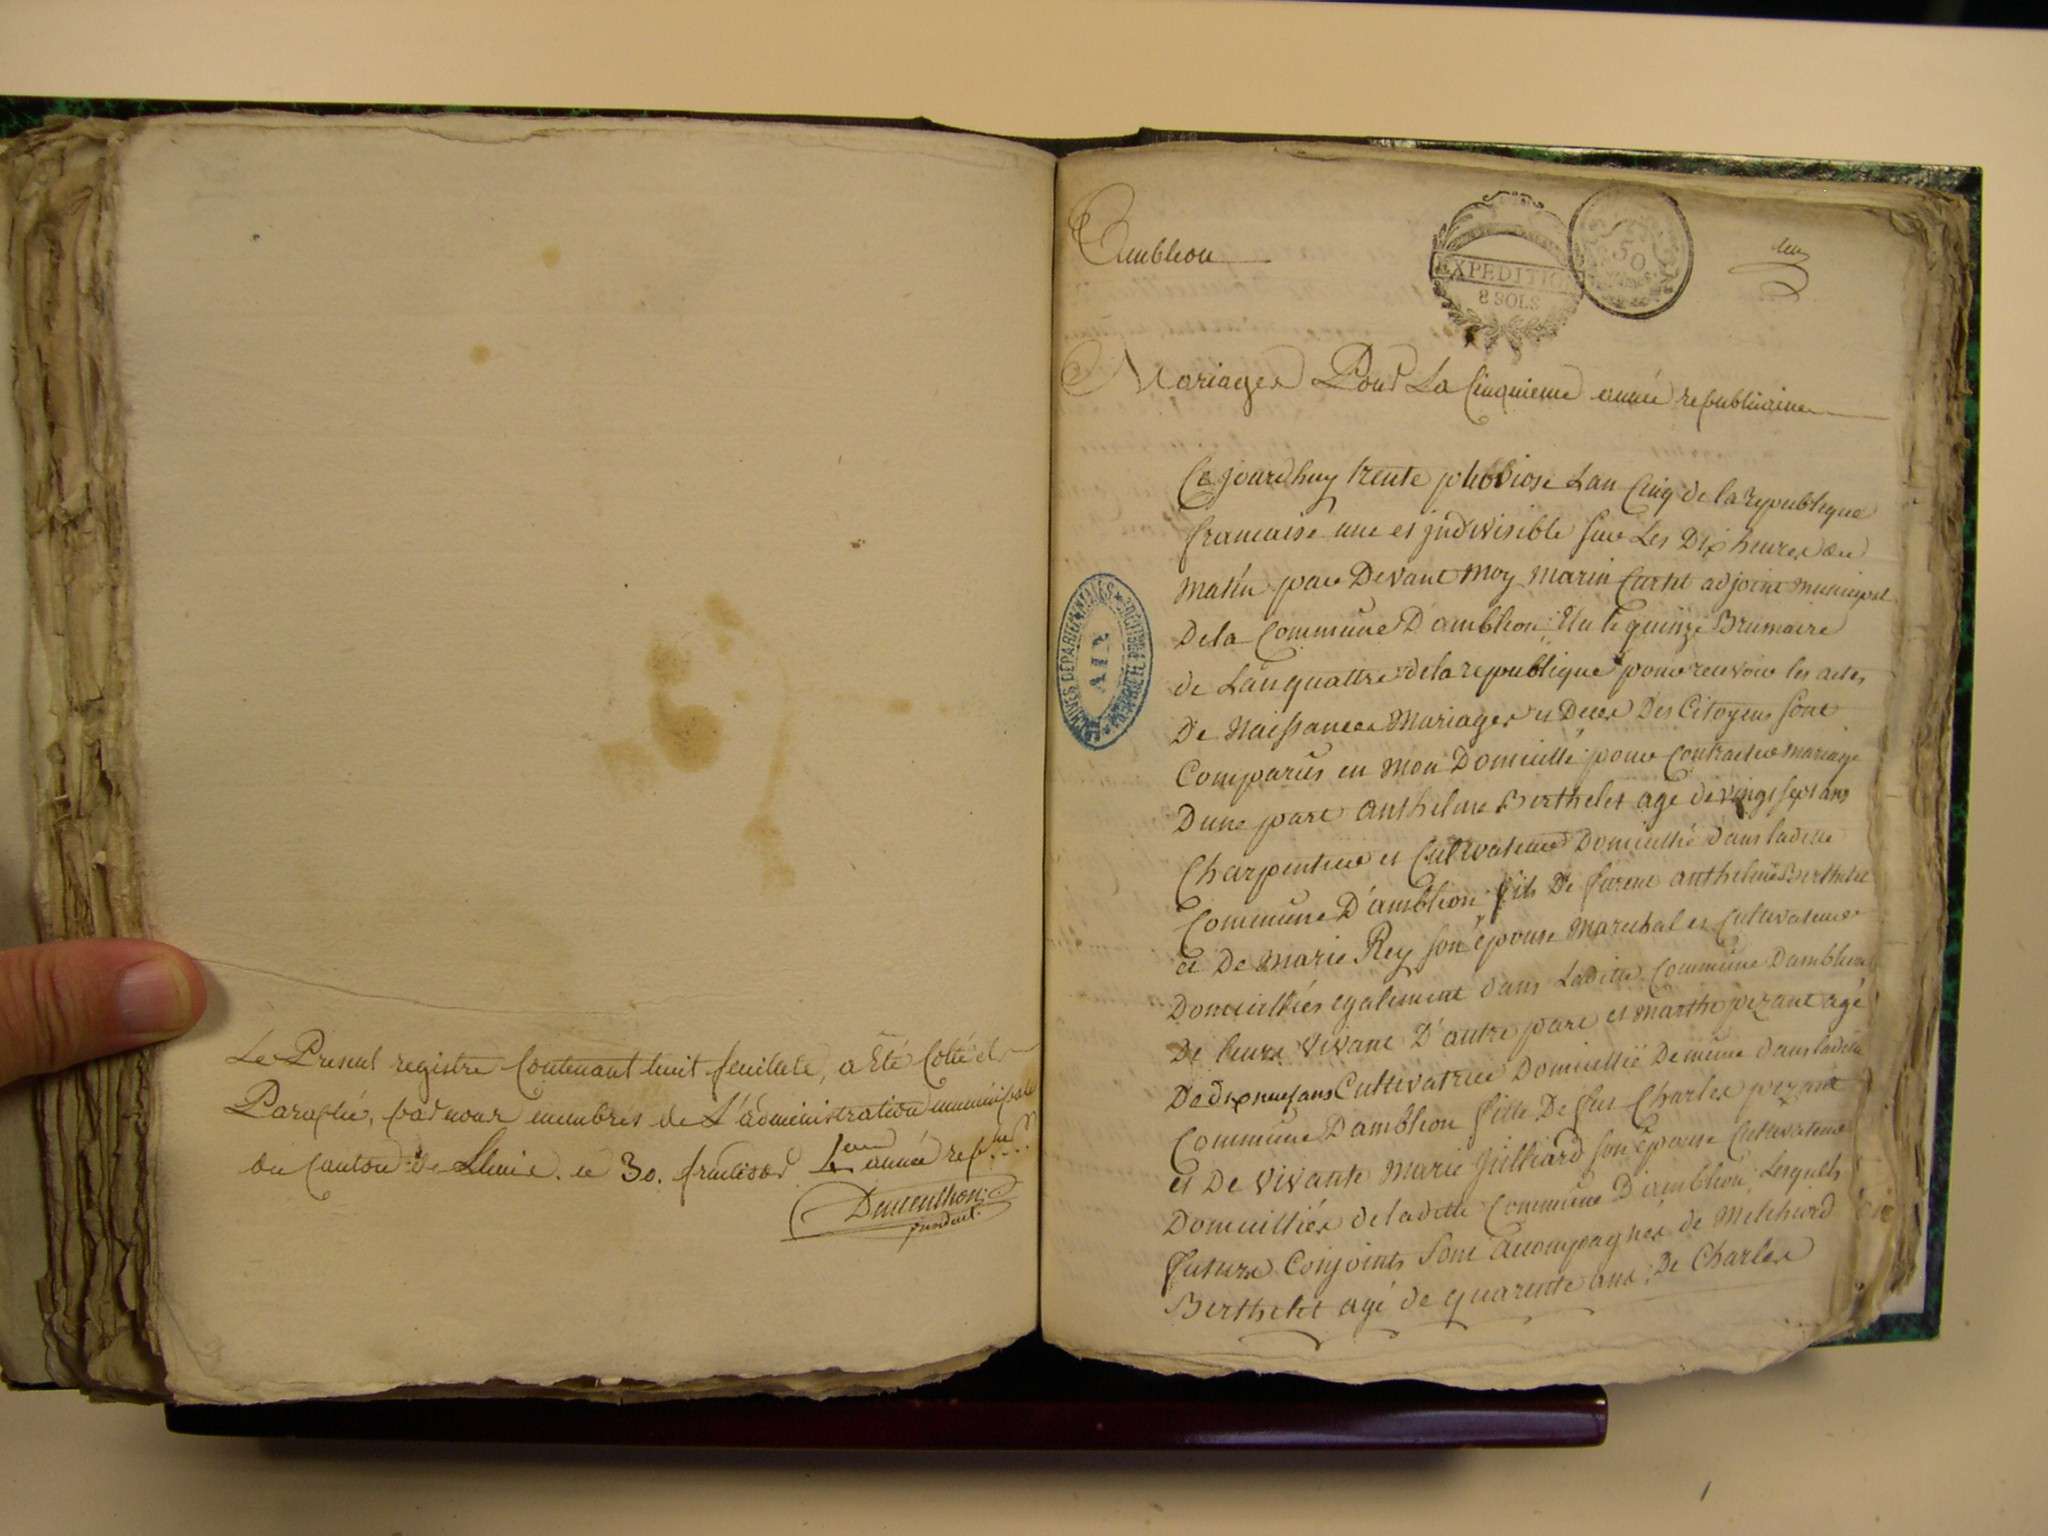 Le Present registre Contenant huit feuillets, a Eté Cotté et
Paraphé, par nous membres de L'administration municipale
du Canton de Lhuis. le 30. fructidor 4eme année rep.ne
Dementhon
president
Ambleon
EXPEDITION
8 SOLS
50
un
Mariages Pour La Cinquieme année republicaine
Ce jourdhuy trente pluviose Lan Cinq de la republique
francaise une et jndivisible sur Les Dix heures du
matin par Devant moy marin Curtet adjoint municipal
De la Commune D'ambleon Elu le quinze Brumaire
de Lan quattre de la republique pour recevoir les actes
De Naissances Mariages et Deces Des Citoyens sont
Comparus en mon Domicille pour Contracter mariage
Dune part anthelme Berthelet agé de vingt sept ans
Charpentier et Cultivateur Domicillié dans ladite
Commune D'ambleon fils De furent anthelme Berthelet
et De marie Rey son epouse marechal et Cultivateur
Domicilliés egalement dans Ladite Commune Dambleon
De leurs vivant D'autre part et marthe pezant agé
De dix neuf ans Cultivatrice Domicillié De même dans ladite
Commune Dambleon fille De fut Charles pezant
et De vivante Marie Juilliard son epouse Cultivateur
Domicilliés de ladite Commune D'ambleon Lesquels
futurs Conjoints sont accompagnés de Melchiord
Berthelet agé de quarente ans, De Charles
ARCHIVES DEPARTEMENTALES
AIN